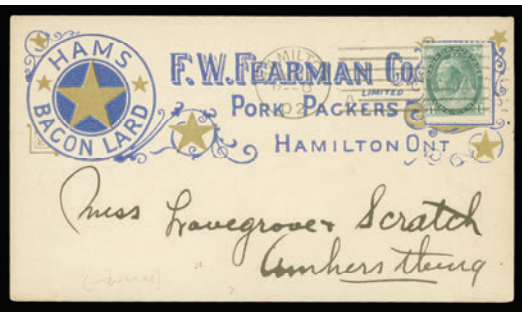 HAMS
BACON LARD
F.W. FEARMAN Co
LIMITED
PORK PACKERS
HAMILTON ONT
HAMILTO
02
Miss Lovegrove Scratch
Amherstburg